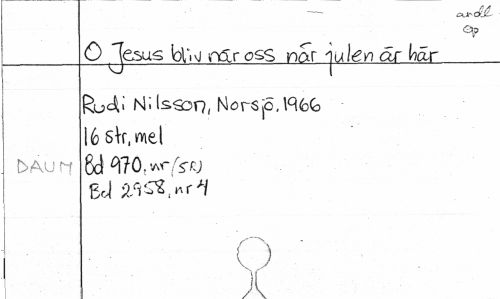 andl
Op
O Jesus bliv når oss når julen är här
Rudi Nilsson, Norsjö, 1966
16 str, mel
DAUM Bd 970, nr (SR)
Bd 2958, nr 4